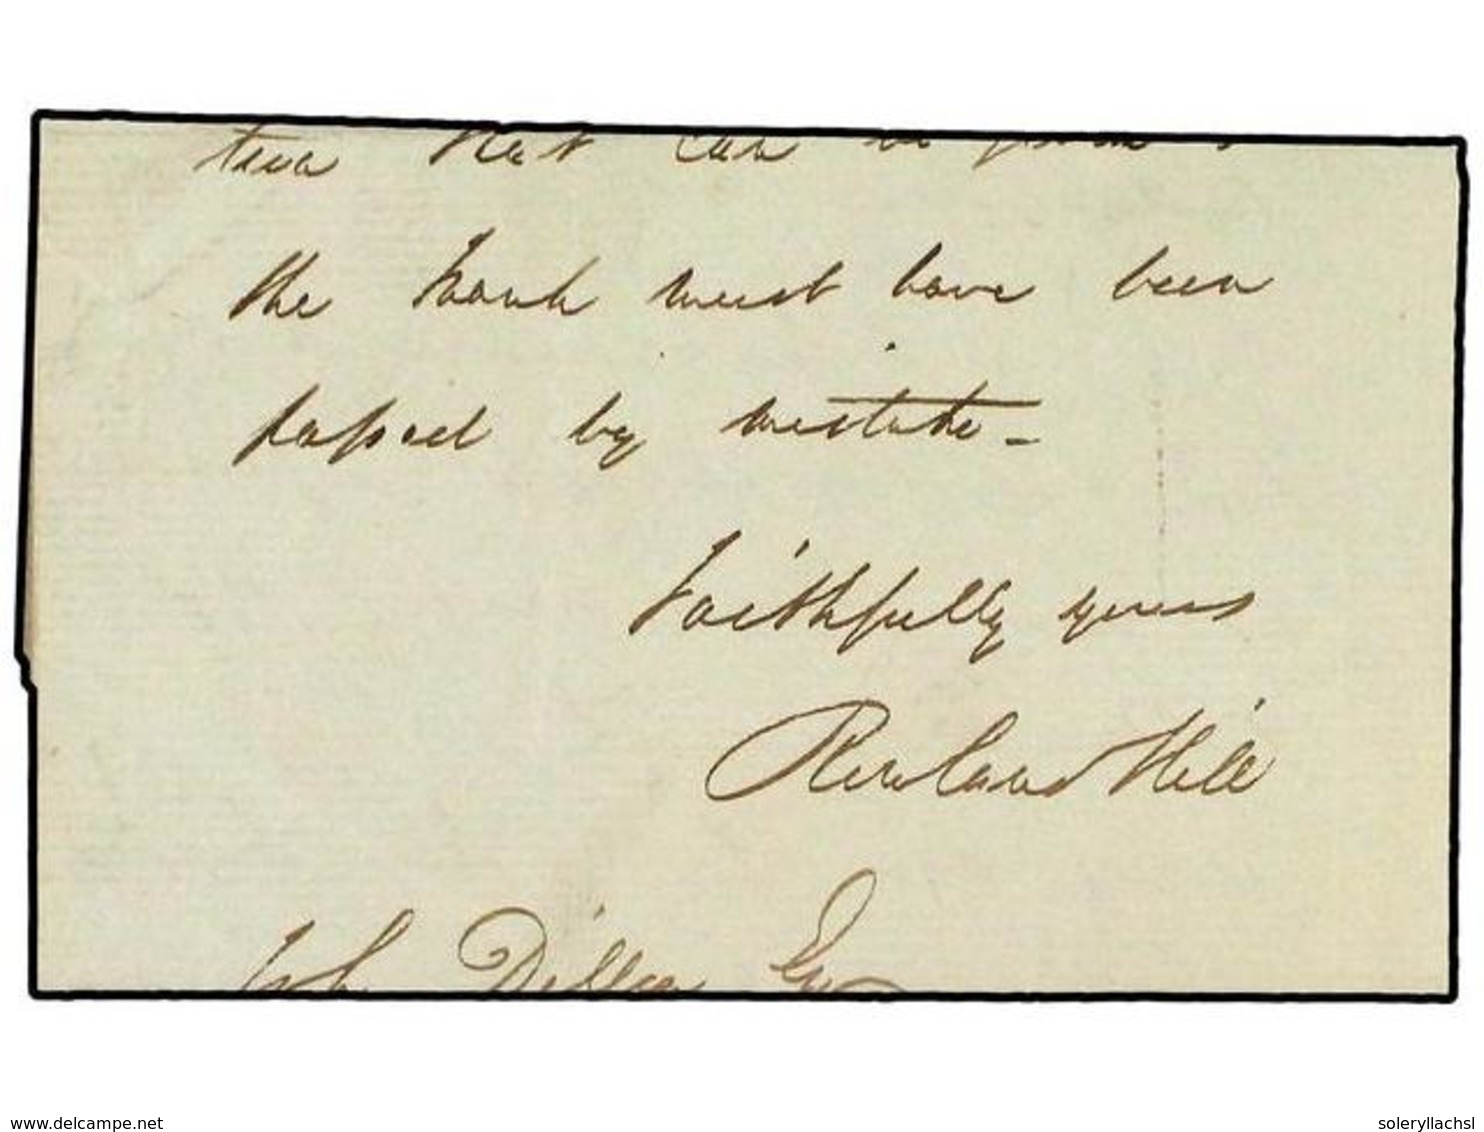 the frank must have been
passed by mistake –
Faithfully yours
Rowland Hill
Dillon Esq
www.delcampe.net
soleryllachsl